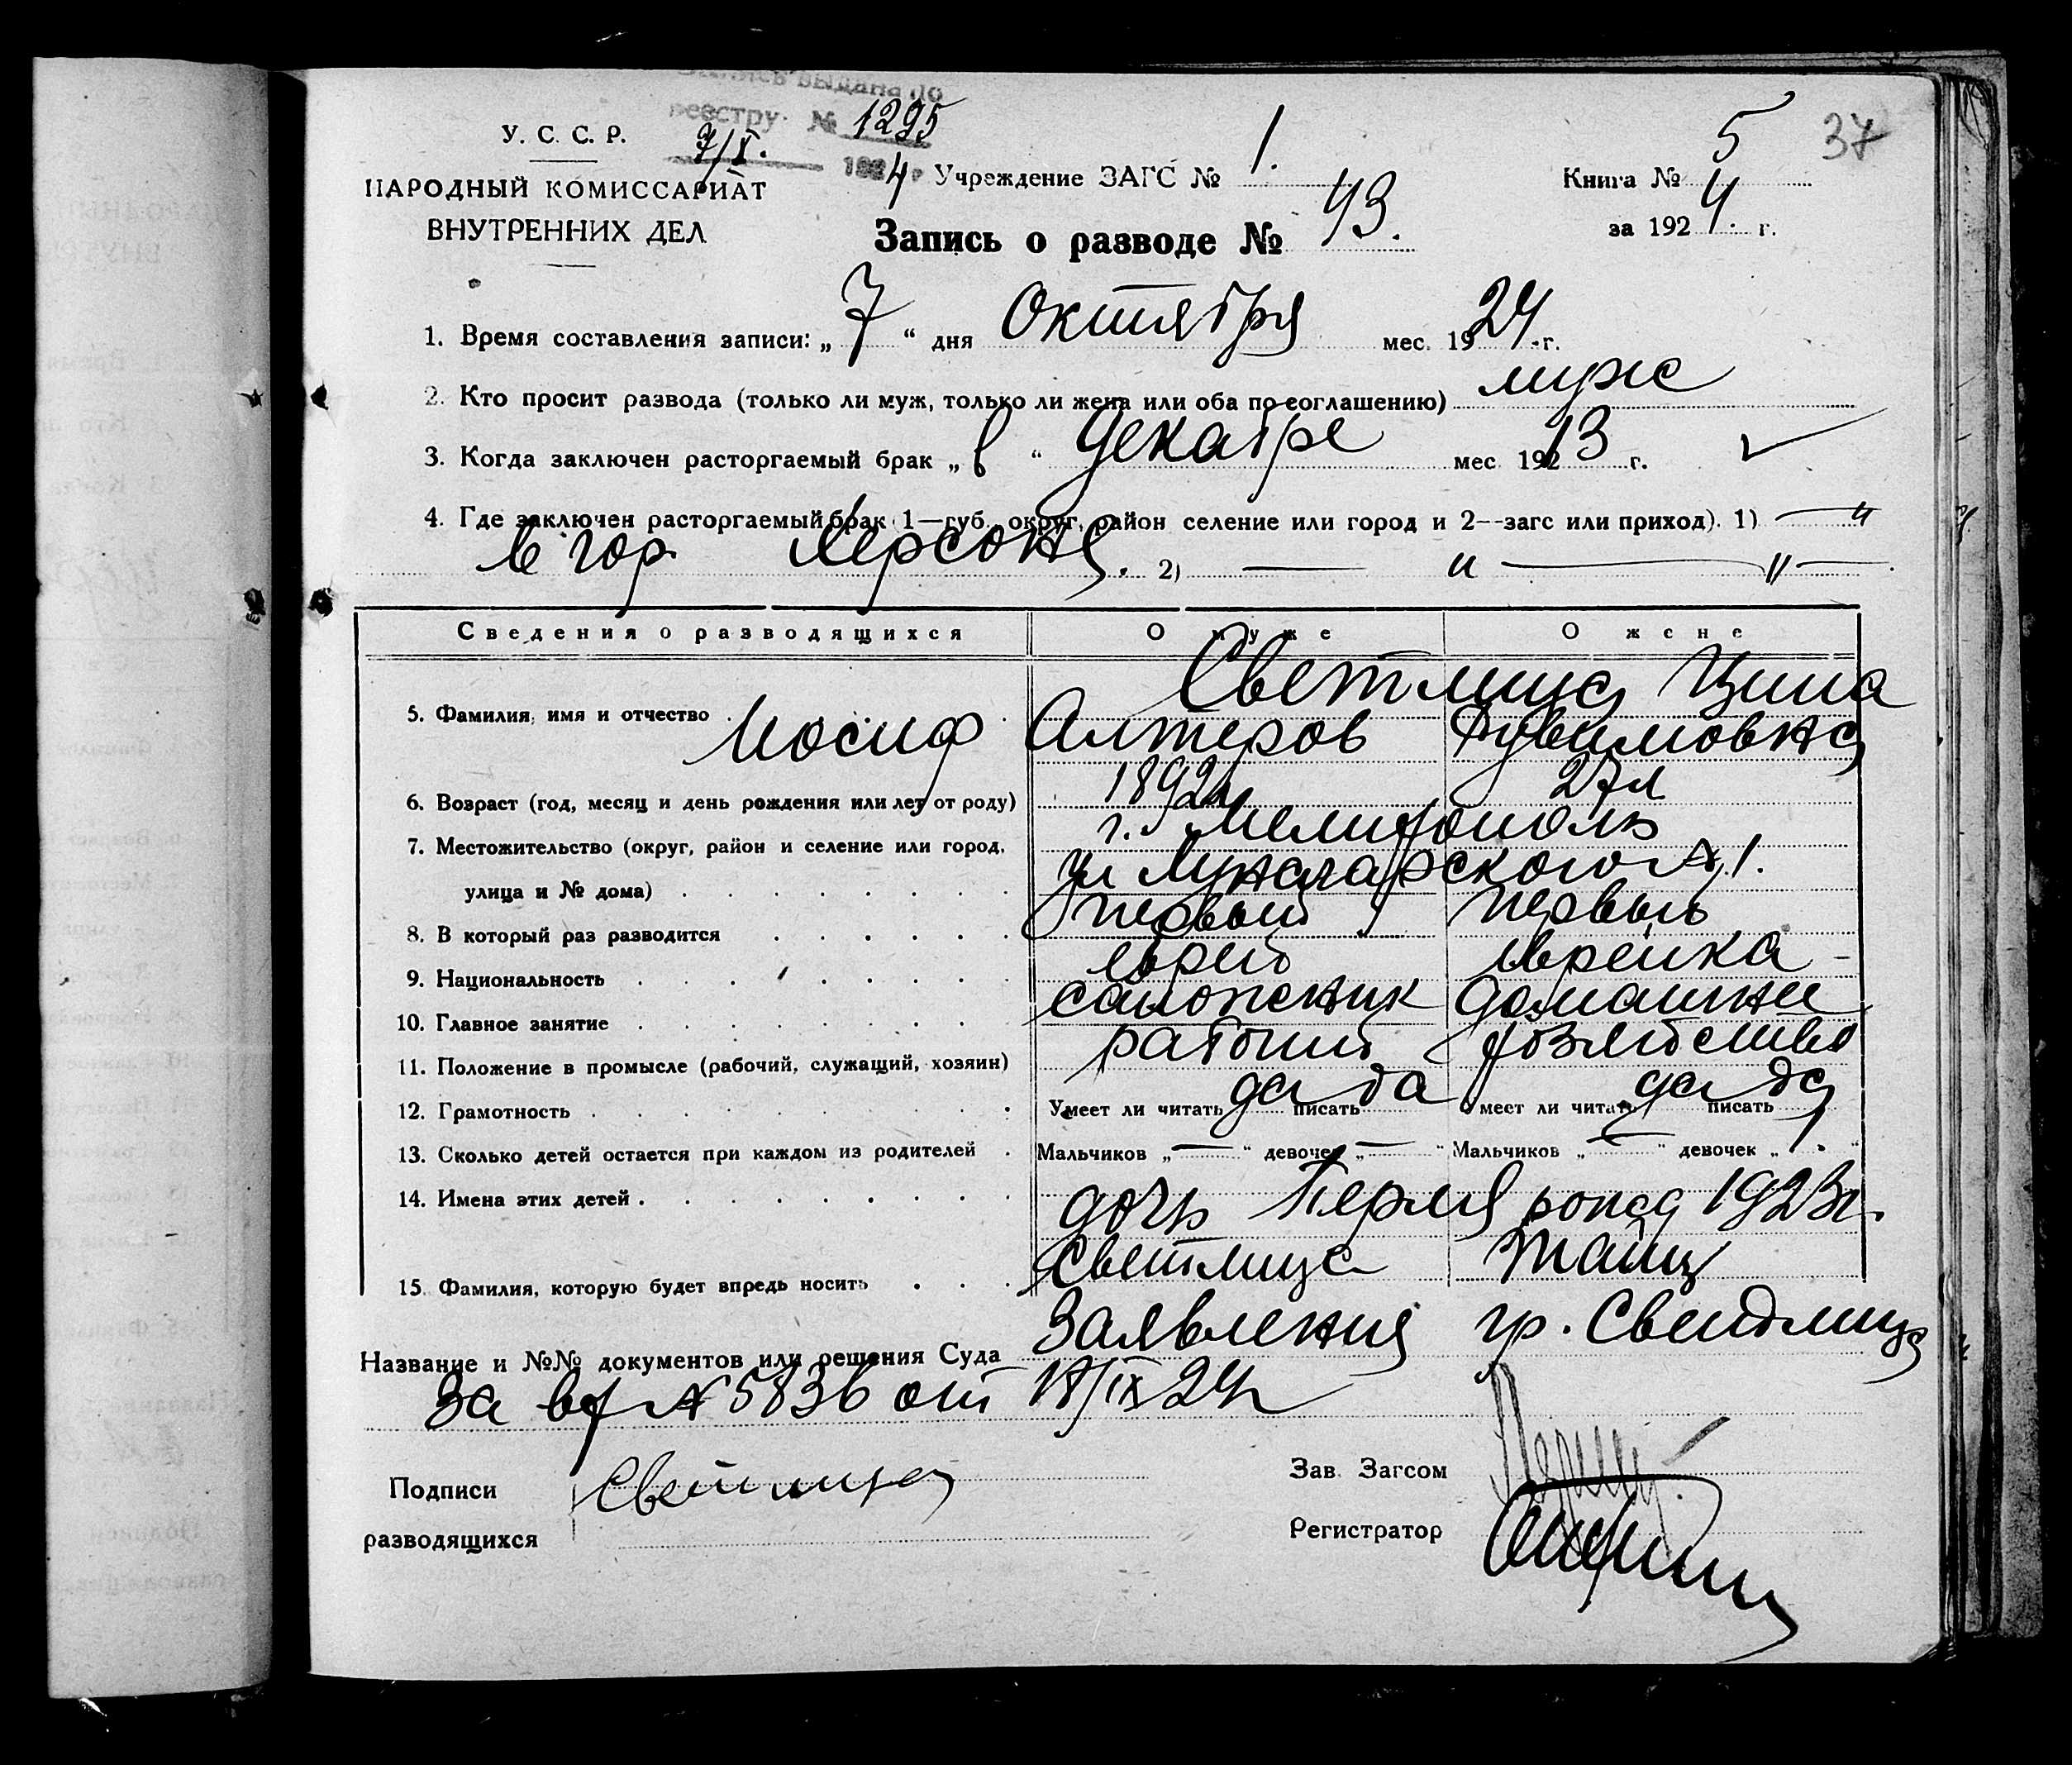 Запись выдана по
реестру № 1295
7/X. 1924 г
37
У. С. С. Р.
НАРОДНЫЙ КОМИССАРИАТ
ВНУТРЕННИХ ДЕЛ
Учреждение ЗАГС № 1.
Книга № 5
за 1924. г.
Запись о разводе № 43.
1. Время составления записи: „ 7 “ дня Октября мес. 1924 г.
2. Кто просит развода (только ли муж, только ли жена или оба по соглашению) муж
3. Когда заключен расторгаемый брак „ в “ декабре мес. 19213 г.
4. Где заключен расторгаемый брак (1—губ., округ, район селение или город и 2--загс или приход). 1) — "
в гор Херсоне. 2) — " — " —
Сведения о разводящихся О муже О жене
Светлица Цина
5. Фамилия, имя и отчество Иосиф Алтеров Рувимовна
6. Возраст (год, месяц и день рождения или лет от роду) 1892г 27л
7. Местожительство (округ, район и селение или город, г. Мелитополь
улица и № дома) ул Луначарского № 1.
8. В который раз разводится первый первый
9. Национальность еврей еврейка
10. Главное занятие сапожник домашнее
11. Положение в промысле (рабочий, служащий, хозяин) рабочий хозяйство
12. Грамотность Умеет ли читать да писать да Умеет ли читать да писать да
13. Сколько детей остается при каждом из родителей Мальчиков „ — “ девочек „ — “ Мальчиков „ — “ девочек „ 1. “
14. Имена этих детей дочь Перля рожд 1923г.
15. Фамилия, которую будет впредь носить Светлица Тайц
Название и №№ документов или решения Суда Заявления гр. Светлица
За вх № 5836 от 18/IX 24г
Подписи Светлица
разводящихся
Зав. Загсом
Регистратор